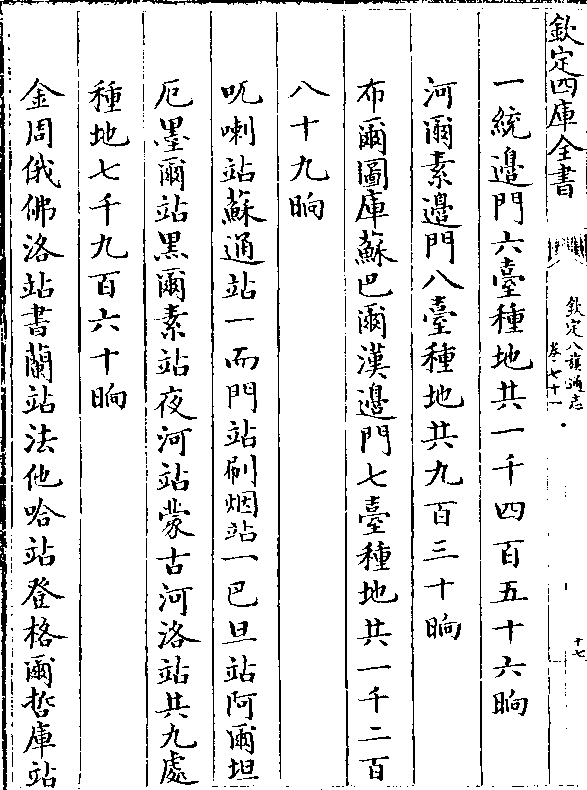 欽定四庫全書
欽定八旗通志
卷七十一
十七
一統邊門六臺種地共一千四百五十六晌
河爾素邊門八臺種地共九百三十晌
布爾圖庫蘇巴爾漢邊門七臺種地共一千二百
八十九晌
呃喇站蘇通站一而門站刷烟站一巴旦站阿爾坦
厄墨爾站黑爾素站夜河站蒙古河洛站共九處
種地七千九百六十晌
金周俄佛洛站書蘭站法他哈站登格爾哲庫站